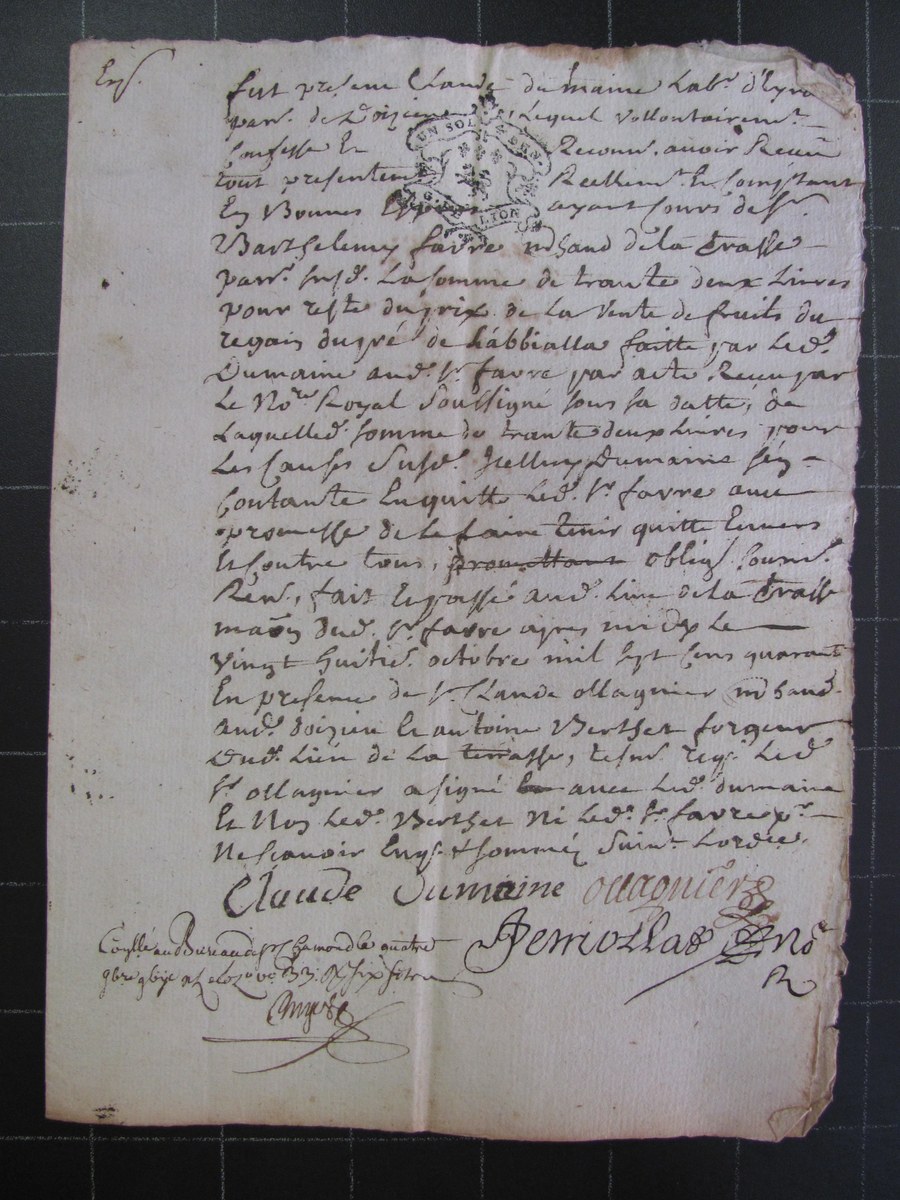 Exp.
fut presens Claude dumaine Lab.r d'Eyra
par.e de Doizieu Lequel vollontairem.t
Confesse Et Reconn. avoir Receu
tout presentem Reellem.t Et Comptant
En Bonnes Espesses ayant Cours de s.r
Barthelemy favre mchand de la trasse
par.e susd. La somme de trante deux Livres
pour reste du prix de La vente de fruits du
regain du pré de Labbialla faitte par Led.
Dumaine aud. s.r favre par acte Receu par
Le No.re Royal Soussigné sous sa datte, de
Laquelle d. somme de trante deux Livres pour
Les Causes Susd. Icelluy Dumaine s'en
Contante En quitte Led. s.r favre avec
promesse de Le faire tenir quitte Envers
Et Contre tous, promettant oblig. soum.
Ren., fait Et passé aud. Lieu de La trasse
maison dud. s.r favre apres midy Le
vingt huitie. octobre mil sept Cens quarante
En presence de s.r Claude ollagnier mchand
aud. doizieu Et antoine Berthet forgeur
dud. Lieu de La terrasse, tesm. req. Led.
s.r ollagnier a signé avec Led. dumaine
Et Non Led. Berthet Ni Led. s.r favre p.r
Ne scavoir Enq. et sommés Suiv. Lordce.
Claude Dumaine ollagnier
Perrollas No.re
R
Con.llé au Bureau de s.t Chamond le quatre
9bre
UN SOL
GEN
LYON